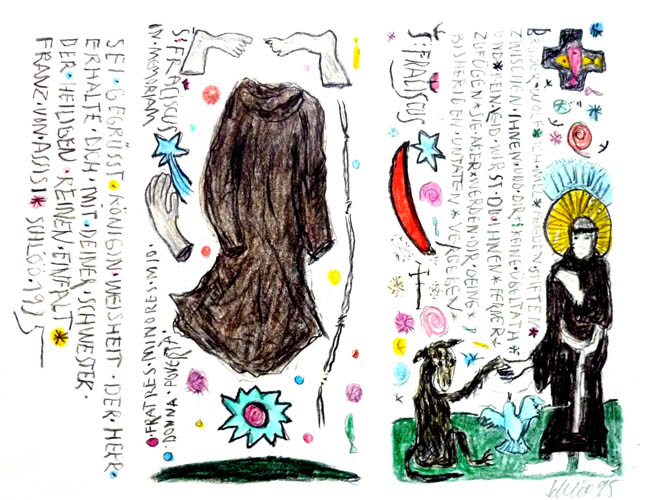 SEI·GEGRÜSST·KÖNIGIN·WEISHEIT·DER·HERR·
ERHALTE·DICH·MIT·DEINER·SCHWESTER·
DER·HEILIGEN·REINEN·EINFALT
FRANZ·VON·ASSISI
S: FRACISCUS
IN·MEMORIAM
FRATRES·MINORES·MIO·
DONNA·POVERTA·
BRUDER·WOLF·ICH·WILL·FRIEDEN·STIFTEN
ZWISCHEN·IHNEN·UND·DIR·KEINE·ÜBELTATH
UND·KEIN·LEID·WIRST·DU·IHNEN·FERNER·
ZUFÜGEN SIE·ABER·WERDEN·DIR·DEINE
BISHERIGEN·UNTATEN VERGEBEN
S: FRACISCUS
95